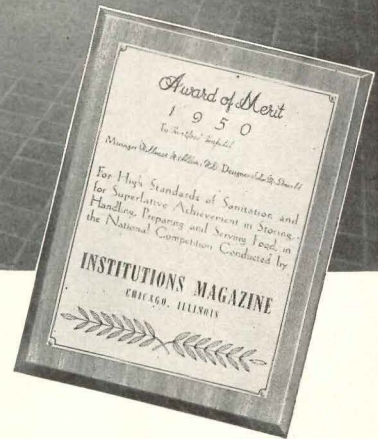 Award of Merit
1950
To Hartford Hospital
Manager Designer John M.
For High Standards of Sanitation and
for Superlative Achievement in Storing,
Handling, Preparing and Serving Food, in
the National Competition Conducted by
INSTITUTIONS MAGAZINE
CHICAGO, ILLINOIS